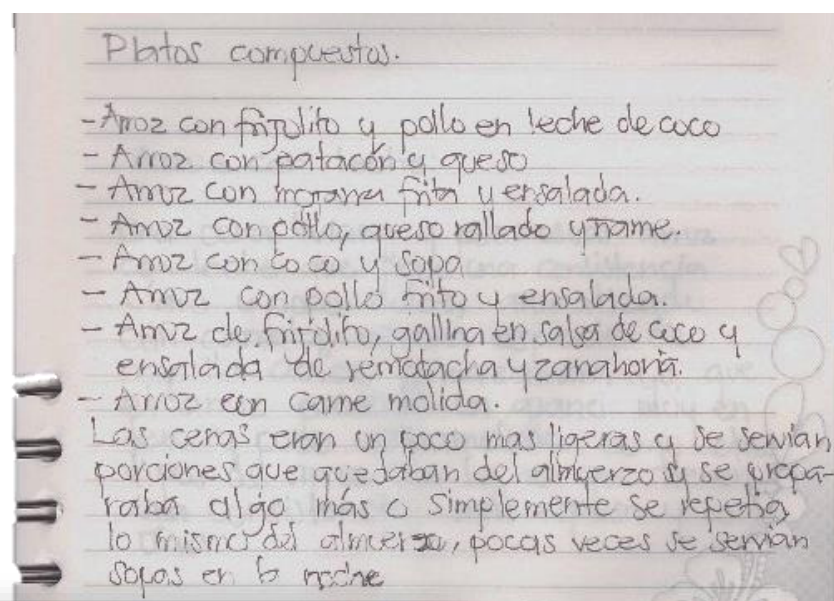 Platos compuestos.
- Arroz con frijolito y pollo en leche de coco
- Arroz con patacón y queso
- Arroz con frita y ensalada.
- Arroz con pollo, queso rallado y ñame.
- Arroz con coco y sopa
- Arroz con pollo frito y ensalada.
- Arroz de frijolito, gallina en salsa de coco y
ensalada de remolacha y zanahoria.
- Arroz con carne molida.
Las cenas eran un poco mas ligeras y se servian
porciones que quedaban del almuerzo y se prepa-
raba algo más o simplemente se repetia
lo mismo del almuerzo, pocas veces se servian
sopas en la noche